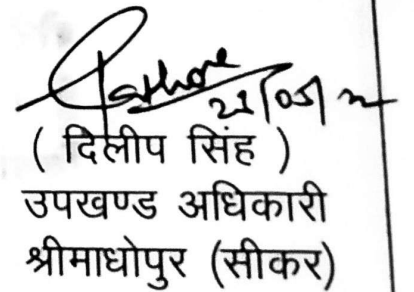 Rathore
21/05/2
( दिलीप सिंह )
उपखण्ड अधिकारी
श्रीमाधोपुर (सीकर)